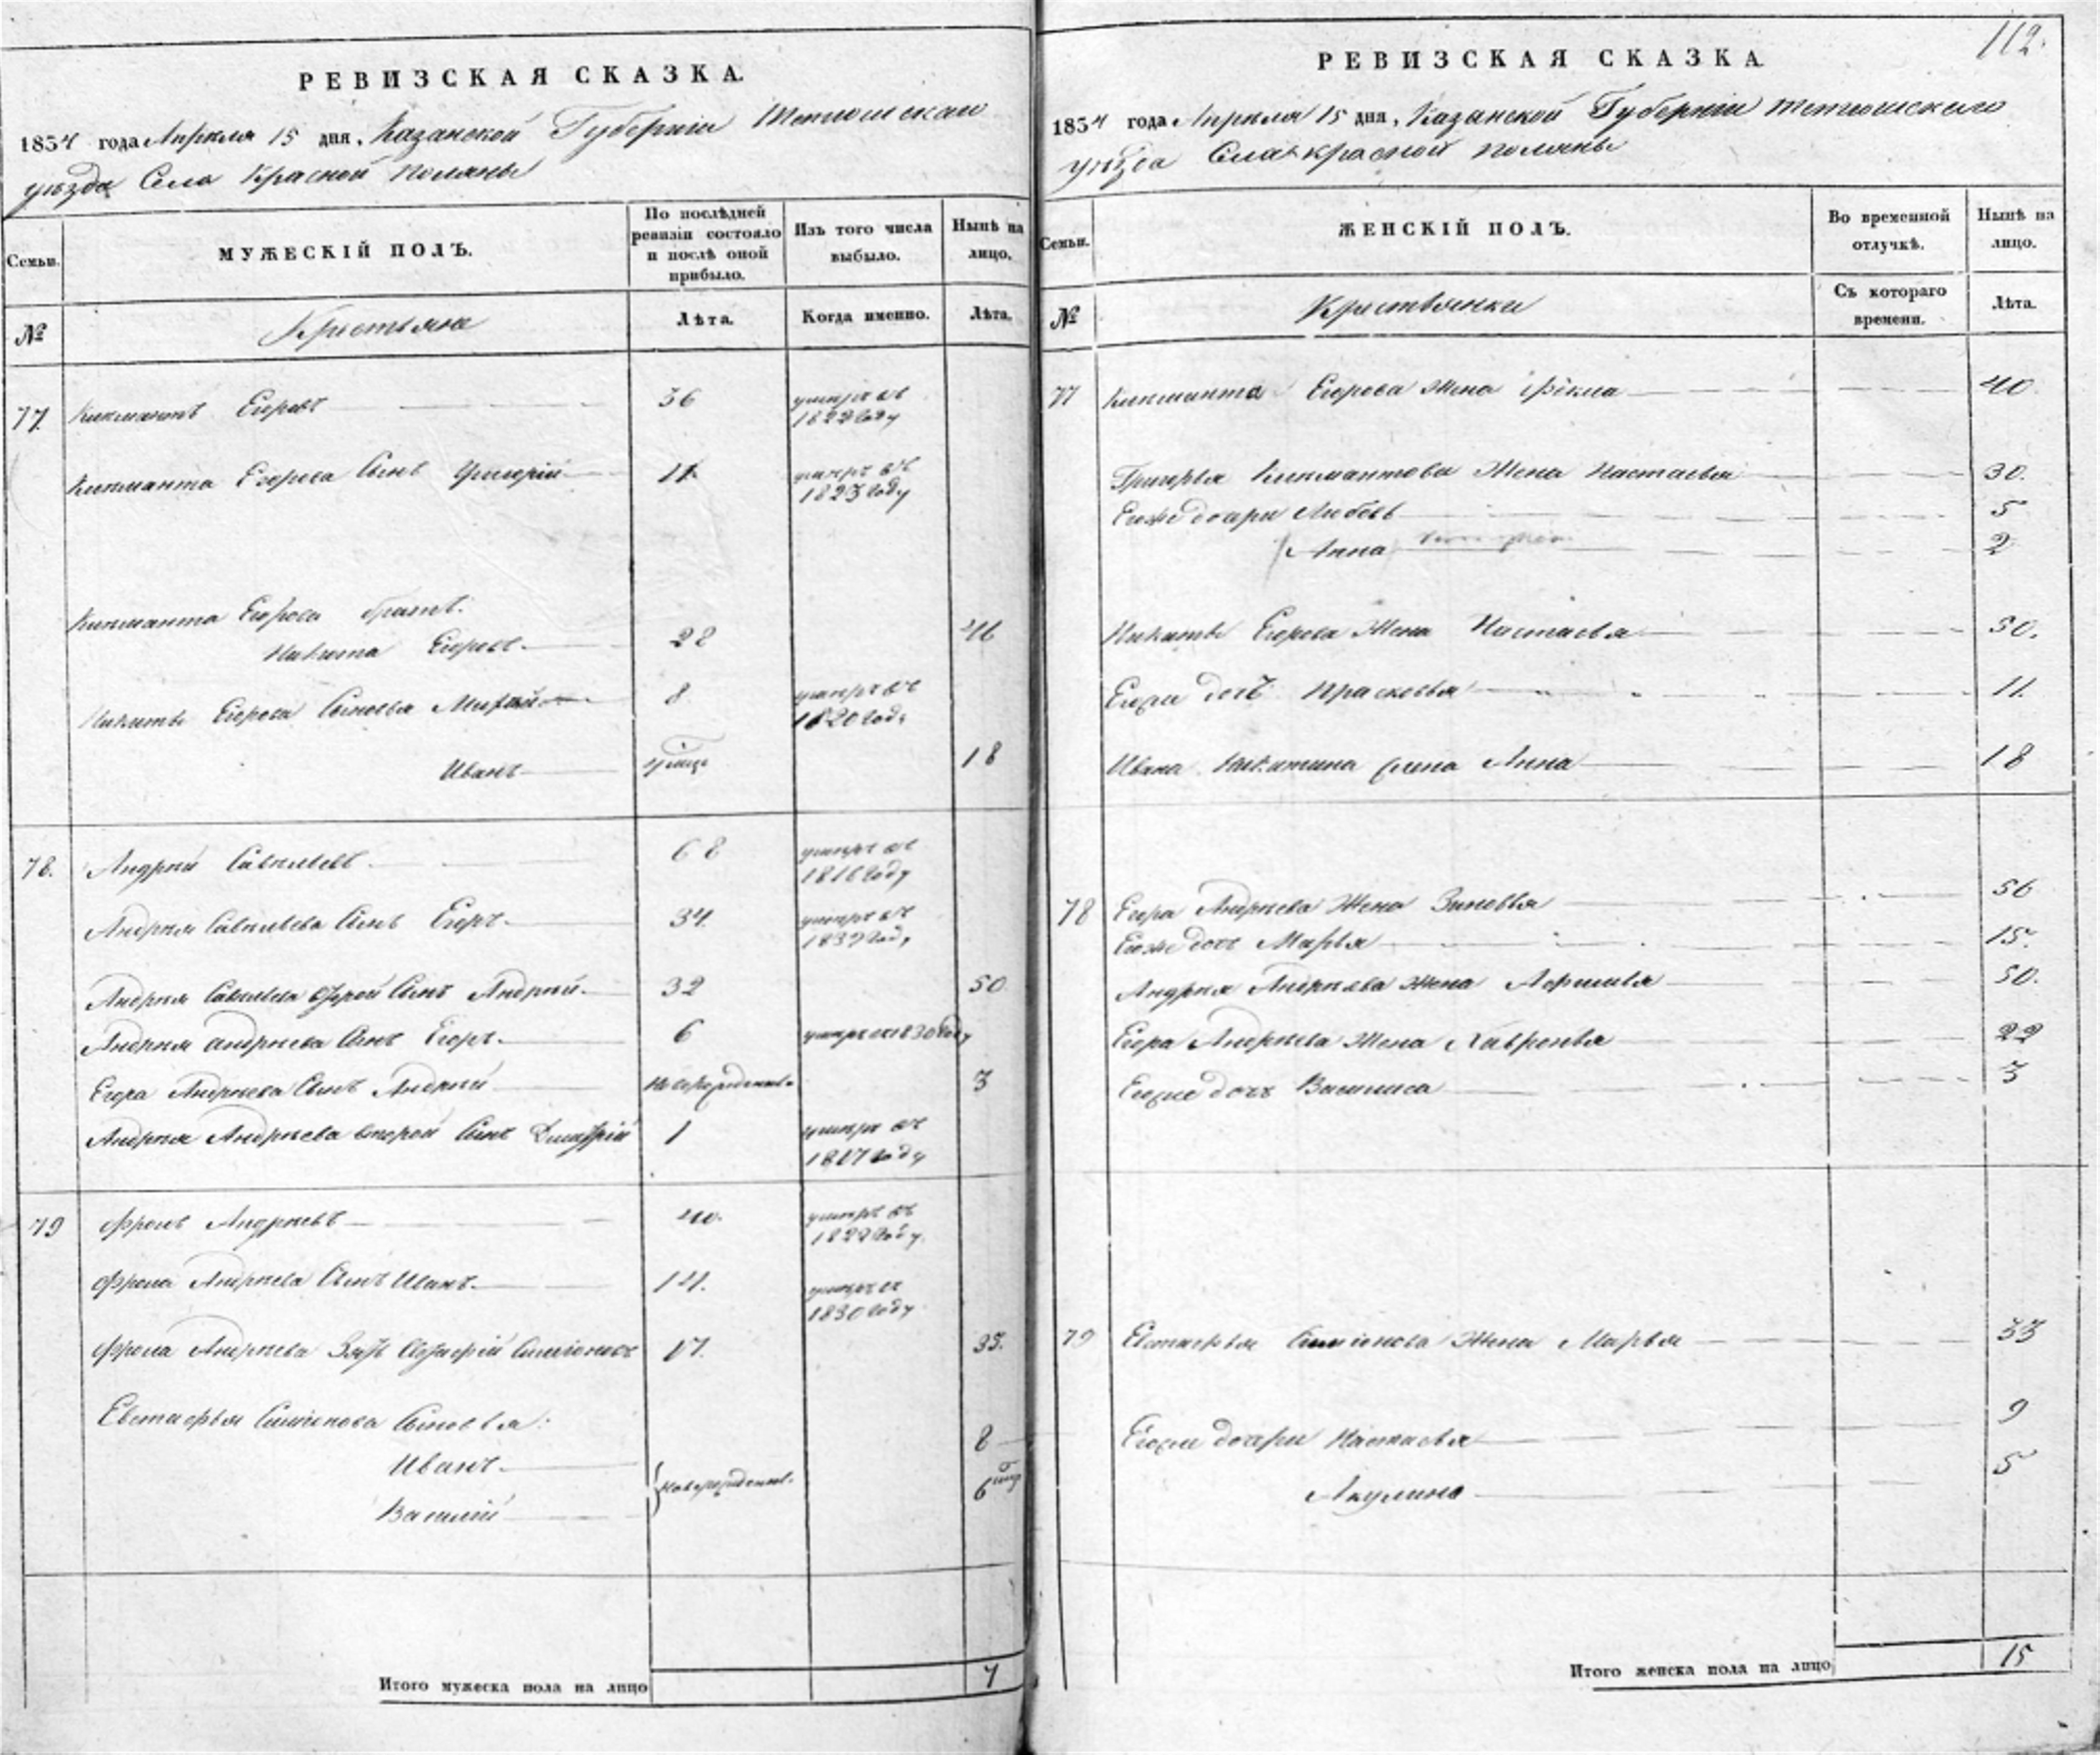 РЕВИЗСКАЯ СКАЗКА.
1834 года Апреля 15 дня, Казанской Губернiи
уезда Села Красной Поляны
Семьи.
МУЖЕСКIЙ ПОЛЪ.
По послѣдней ревизiи состояло и послѣ оной прибыло.
Изъ того числа выбыло.
Нынѣ на лицо.
№
Крестьяна
Лѣта.
Когда именно.
Лѣта.
77 Егоровъ 36 умеръ въ 1822 году
Егорова Сынъ Григорiй 11 умеръ въ 1823 году
Егорова братъ:
Никита Егоровъ 28 46
Никиты Егорова Сыновья 8 умеръ въ 1820 году
Иванъ 18
78. Андрей Савельевъ 68 умеръ въ 1816 году
Андрея Савельева Сынъ Егоръ 34. умеръ въ году
Андрея Савельева Сынъ Андрей 32 50
Андрея Андреева Сынъ Егоръ 6 умеръ въ 1830 году
Егора Андреева Сынъ Андрей 3
Андрея Андреева второй Сынъ Дмитрiй 1 умеръ въ году
79 Фролъ Андреевъ 40. умеръ въ 1822 году
Фрола Андреева Сынъ Иванъ 14. умеръ въ 1830 году
Фрола Андреева Зять 17. 35.
Евстафья Сыновья:
Иванъ 8
Василiй 6
Итого мужеска пола на лицо 7
112.
РЕВИЗСКАЯ СКАЗКА
1834 года Апреля 15 дня, Казанской Губернiи
уезда Села Красной поляны
Семьи.
ЖЕНСКIЙ ПОЛЪ.
Во временной отлучкѣ.
Нынѣ на лицо.
№
Крестьянки
Съ котораго времени.
Лѣта.
77 Егорова Жена Фекла 40
Григорья Жена Настасья 30.
Егоже дочери Любовь 5
Анна 2
Никиты Егорова Жена Настасья 50.
Егоже дочь Прасковья 11.
Ивана Никитина жена Анна 18
78 Егора Андреева Жена Зиновья 56
Егоже дочь Марья 15.
Андрея Андреева Жена 50.
Егора Андреева Жена Хавронья 22
Егоже дочь Василиса 3
79 Евстафья Жена Марья 33
Егоже дочери Настасья 9
Акулина 5
Итого женска пола на лицо 15